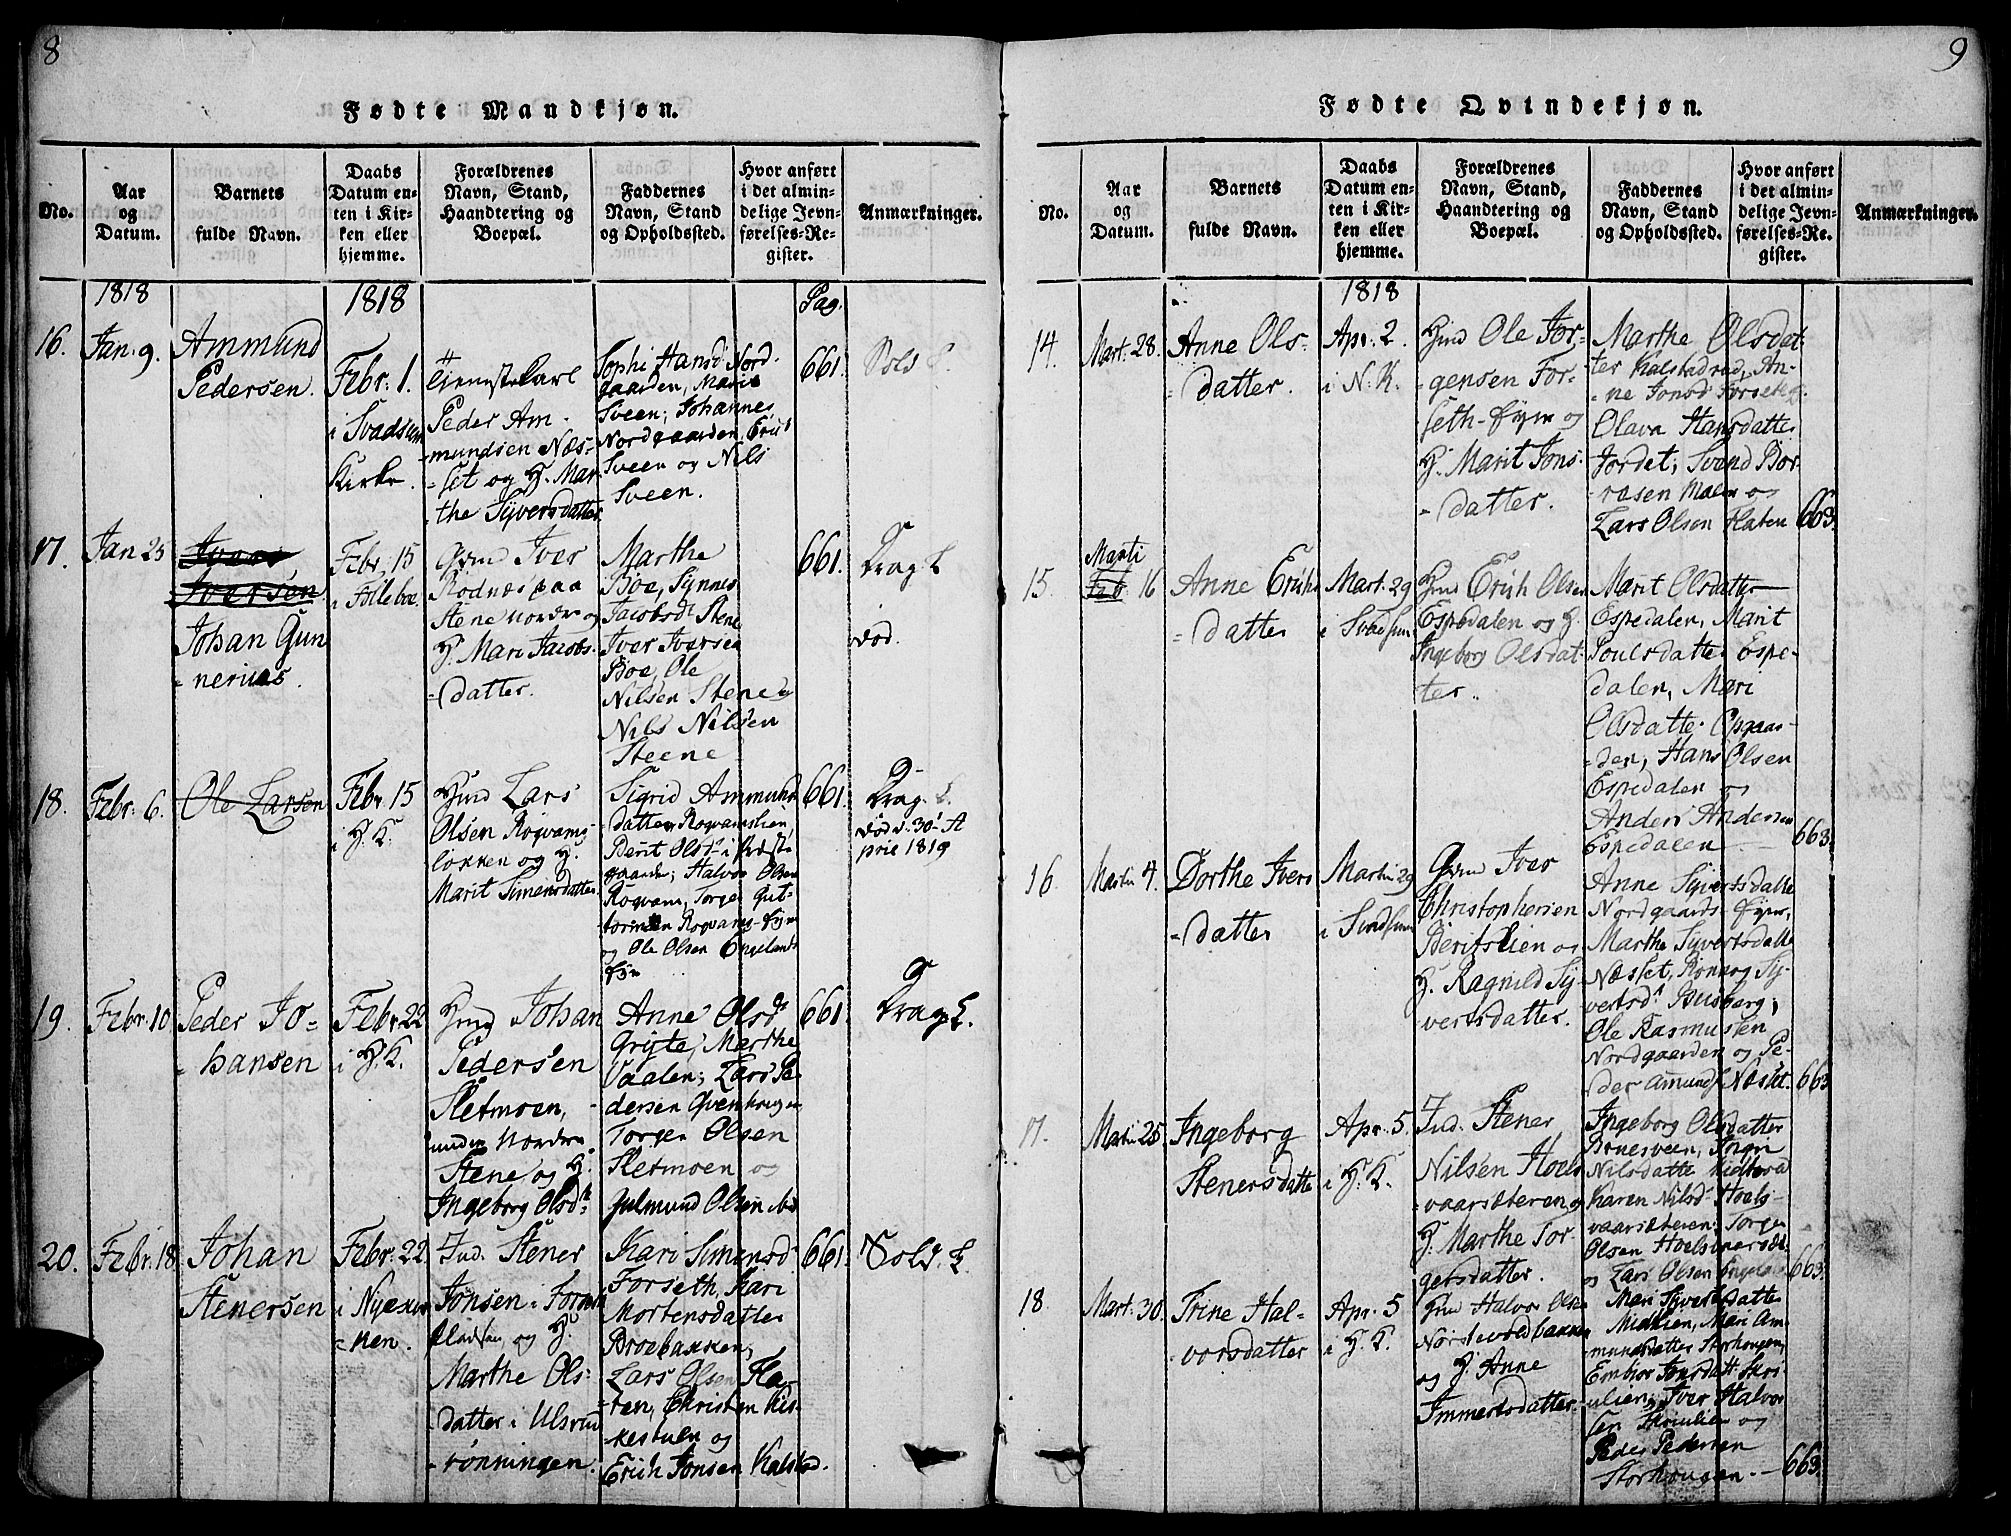 8
Fødte Mandkjøn.
No.
Aar
og
Datum.
Barnets
fulde Navn.
Daabs
Datum en-
ten i Kir-
ken eller
hjemme.
Forældrenes
Navn, Stand,
Haandtering og
Boepæl.
Faddernes
Navn, Stand
og Opholdssted.
Hvor anført
i det almin-
delige Jevn-
førelses-Re-
gister.
Anmærkninger.
1818
1818
Pag.
16.
Jan. 9.
Ammund
Pedersen.
Febr. 1.
i Svadsum
Kirke.
Tjenestekarl
Peder Am-
mundsen Næs-
set og H. Mar-
the Syversdatter
Sophi Hansd Nord-
gaarden, Marie
Sveen; Johannes
Nordgaarden, Erik
Sveen og Nils
Sveen.
661.
17.
Jan 25
Ivers
Iversen
Johan Gun
nerius.
Febr. 15
i Folleboe.
Grm Iver
Rodnæs paa
Stene nordre og
H. Mari Jacobs-
datter.
Marthe
Boe, Synnes
Jacobsdr Stene
Iver Iversen
Boe, Ole
Nilsen Stene og
Nils Nilsen
Steene
661.
Drag. E
død.
18.
Febr. 6.
Ole Larsen
Febr. 15
i H. K.
Hmd Lars
Olsen Rogvams-
løkken og H.
Marit Simensdatter
Sigrid Ammunds
datter Rogvamslien
Berit Olsdr i Præste
gaarden; Halvor Olsen
Rogvam, Torger Gut-
tormsen Rogvams-Eyen
og Ole Olsen Engelands
Eye
661.
Drag. E.
død d. 30te A
pril 1819
19.
Febr. 10.
Peder Jo-
hansen
Febr. 22
i H. K.
Hmd Johan
Pedersen
Sletmoen,
under Nordre
Stene og H.
Ingeborg Olsdr
Anne Olsdr
Gryte, Marthe
Vaalen; Lars Pe-
dersen Qvenhougen
Torger Olsen
Sletmoen og
Gulmund Olsen ibid
661.
Drag. E.
20.
Febr. 18
Johan
Stenersen
Febr. 22.
i Nyekir
ken.
Ind. Stener
Jonsen i Forseth
pladsen, og H.
Marthe Ols-
datter i Ulsrud
rønningen.
Kari Simensdr
Forseth, Kari
Mortensdatter
Broebakken,
Lars Olsen Fla-
ten, Christen Kis-
kestuen og
Erich Jonsen Kalstad.
661.
Sold. E.
9
Fødte Qvindekjøn.
No.
Aar
og
Datum.
Barnets
fulde Navn.
Daabs
Datum en-
ten i Kir-
ken eller
hjemme.
Forældrenes
Navn, Stand,
Haandtering og
Boepæl.
Faddernes
Navn, Stand
og Opholdssted.
Hvor anført
i det almin-
delige Jevn-
førelses-Re-
gister.
Anmærkninger.
1818
14.
Mart. 28.
Anne Ols-
datter.
Apr. 2.
i N. K.
Hmd Ole Jor-
gensen For-
seth-Eyen og
H. Marit Jons-
datter.
Marthe Olsdat
ter Kalstadrud, An-
ne Jonsd Forseth
Olava Hansdatter
Jordet; Svend Bor-
resen Moen og
Lars Olsen Flaten
663.
15.
Marti
Feb 16
Anne Erichs
datter
Mart. 29
i Svadsum
Hmd Erich Olsen
Espedalen og H.
Ingeborg Olsdat-
ter.
Marit Olsdatter
Espedalen, Marit
Poulsdatter Espe-
dalen, Mari
Olsdatter Opgaar-
den, Hans Olsen
Espedalen og
Anders Andersen
Espedalen
663
16.
Martii 4.
Dorthe Ivers
datter
Martii 29
i Svadsum
Grm Iver
Christophersen
Beritslien og
H. Ragnild Sy-
vertsdatter.
Anne Syvertsdatter
Nordgaards-Eyen,
Marthe Syvertsdatter
Næsset, Rønnog Sy-
vertsdr Busberg;
Ole Rasmussen
Nordgaarden og Pe-
der Amunds Næset.
663
17.
Martii 25
Ingeborg
Stenersdatter
Apr. 5.
i H. K.
Ind. Stener
Nilsen Hoels
vaarsæteren og
H. Marthe Tor-
gersdatter.
Ingeborg Olsdatter
Bruesveen, Ingri
Nilsdatter
Karen Nilsd Hoels-
vaarsæteren; Torger
Olsen Hoelsvaarsæt.
og Lars Olsen Engeland
663.
18
Mart. 30.
Trine Hal-
vorsdatter
Apr. 5
i H. K.
Hmd Halvor Olsen
Nørstevoldbakken
og H. Anne
Immertsdatter.
Mari Syversdatter
Mari Am-
mundsdatter Storhougen,
Embjor Jonsdatt Skri-
ulien; Iver Halvor
sen Skriulien og
Peder Pedersen
Storhougen.
663.